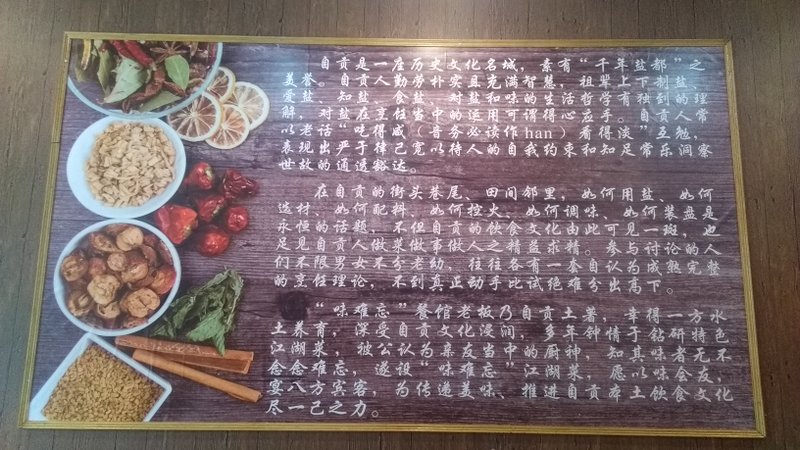 自贡是一座历史文化名城，素有“千年盐都”之
美誉。自贡人勤劳朴实且充满智慧，祖辈上下制盐、
爱盐、知盐、食盐，对盐和味的生活哲学有独到的理
解，对盐在烹饪当中的运用可谓得心应手。自贡人常
以老话“吃得咸（音务必读作han）看得淡”互勉，
表现出严于律己宽以待人的自我约束和知足常乐洞察
世故的通透豁达。
在自贡的街头巷尾、田间邻里，如何用盐、如何
选材、如何配料、如何控火、如何调味、如何装盘是
永恒的话题，不但自贡的饮食文化由此可见一斑，也
足见自贡人做菜做事做人之精益求精。参与讨论的人
们不限男女不分老幼，往往各有一套自认为成熟完整
的烹饪理论，不到真正动手比试绝难分出高下。
“味难忘”餐馆老板乃自贡土著，幸得一方水
土养育，深受自贡文化浸润，多年钟情于钻研特色
江湖菜，被公认为亲友当中的厨神，知其味者无不
念念难忘，遂设“味难忘”江湖菜，愿以味会友，
宴八方宾客，为传递美味、推进自贡本土饮食文化
尽一己之力。